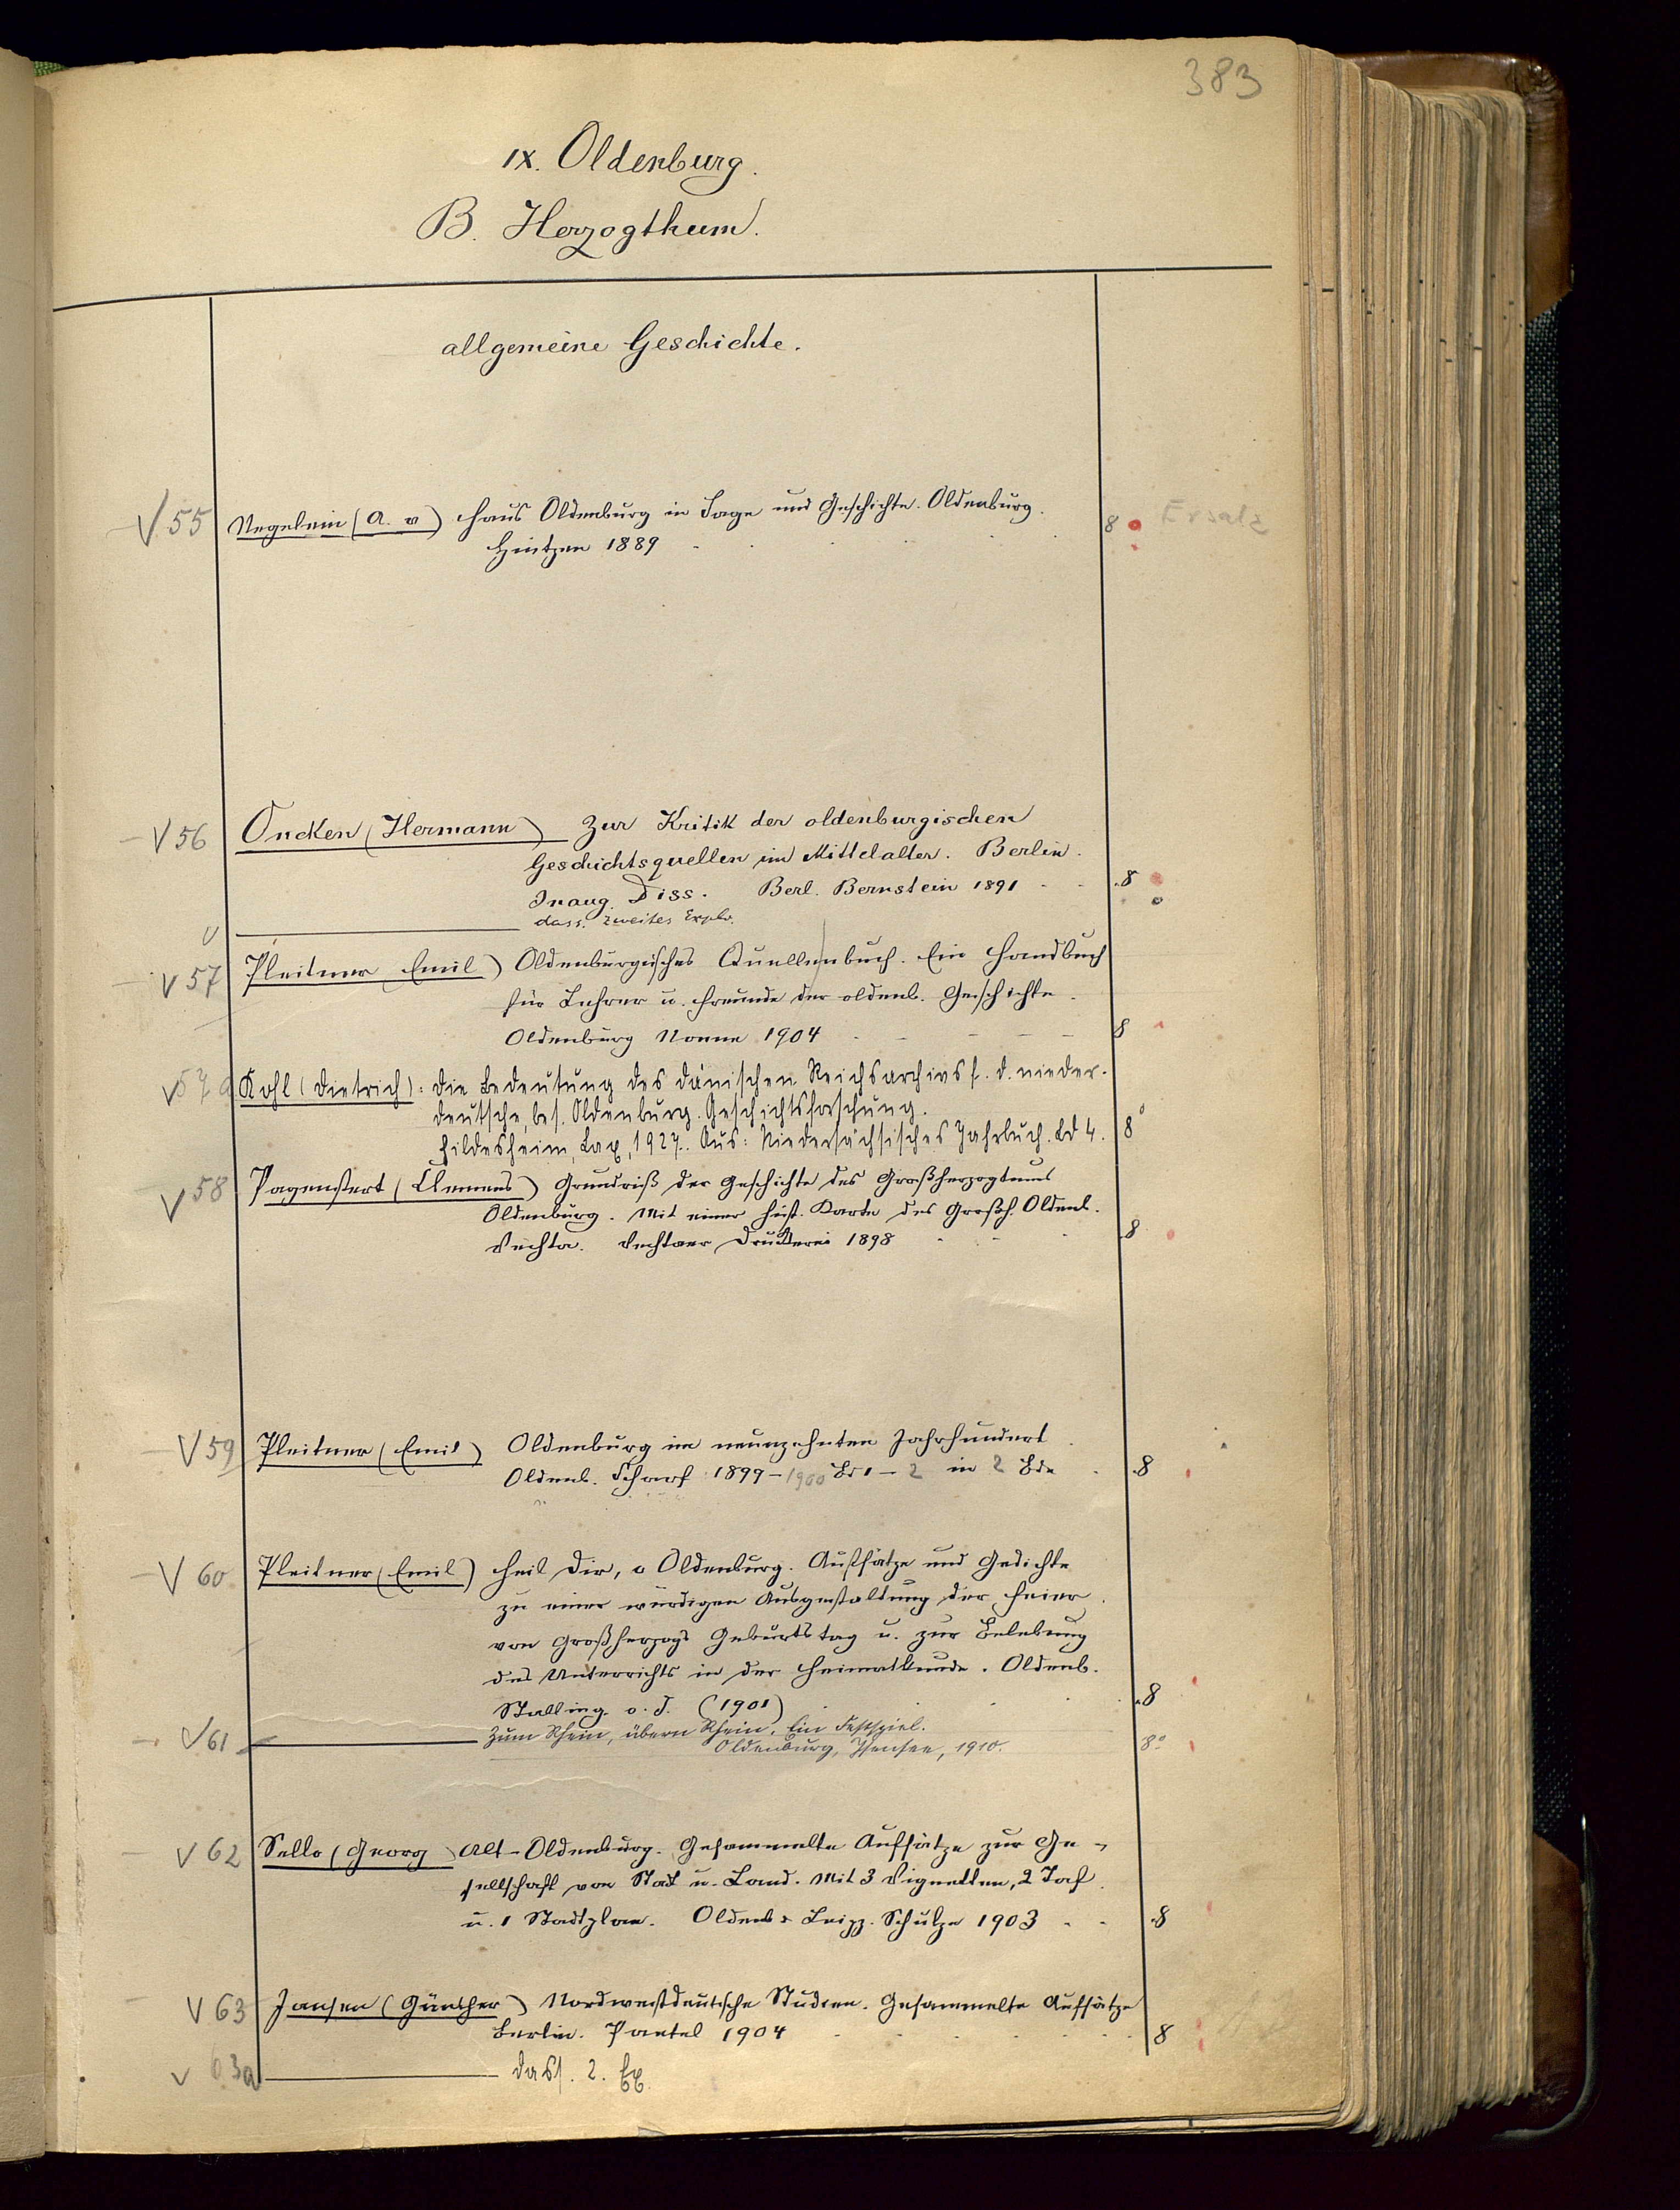 383
IX. Oldenburg.
B. Herzogthum.
allgemeine Geschichte.
55 Negelein (A. v) Haus Oldenburg in Sage und Geschichte. Oldenburg. 8 Ersatz
Hintzen 1889
56 Oncken (Hermann) Zur Kritik der oldenburgischen
Geschichtsquellen im Mittelalter. Berlin.
Inaug. Diss. Berl. Bernstein 1891 8
dass. zweites Explr.
57 Pleitner Emil) Oldenburgisches Quellenbuch. Ein Handbuch
für Lehrer u. Freunde der oldenb. Geschichte.
Oldenburg Nonne 1904 8
57a Kohl (Dietrich): Die Bedeutung des dänischen Reichsarchivs f. d. nieder-
deutsche, bes. Oldenburg. Geschichtsforschung.
Hildesheim, Lax, 1927. Aus: Niedersächsisches Jahrbuch. Bd 4. 8°
58 Pagenstert (Clemens) Grundriß der Geschichte des Großherzogtums
Oldenburg. Mit einer hist. Karte des Großh. Oldenb.
Vechta. Vechtaer Druckerei 1898 8
59 Pleitner (Emil) Oldenburg im neunzehnten Jahrhundert
Oldenb. Scharf 1899-1900 Bd 1-2 in 2 Bde 8
60 Pleitner (Emil) Heil dir, o Oldenburg. Aufsätze und Gedichte
zu einer würdigen Ausgestaltung der Feier
von Großherzogs Geburtstag u. zur Belebung
des Unterrichts in der Heimatkunde. Oldenb.
Stalling o. J. (1901) 8
61 Zum Rhein, übern Rhein. Ein Festspiel.
Oldenburg, Isensee, 1910. 8°
62 Sello (Georg) Alt-Oldenburg. Gesammelte Aufsätze zur Ge-
sellschaft von Stadt u. Land. Mit 3 Vignetten, 2 Taf.
u. 1 Stadtplan. Oldenb & Leipz. Schulze 1903 8
63 Jansen (Günther) Nordwestdeutsche Studien. Gesammelte Aufsätze
Berlin. Paetel 1904 8
63a dass. 2. Ex.